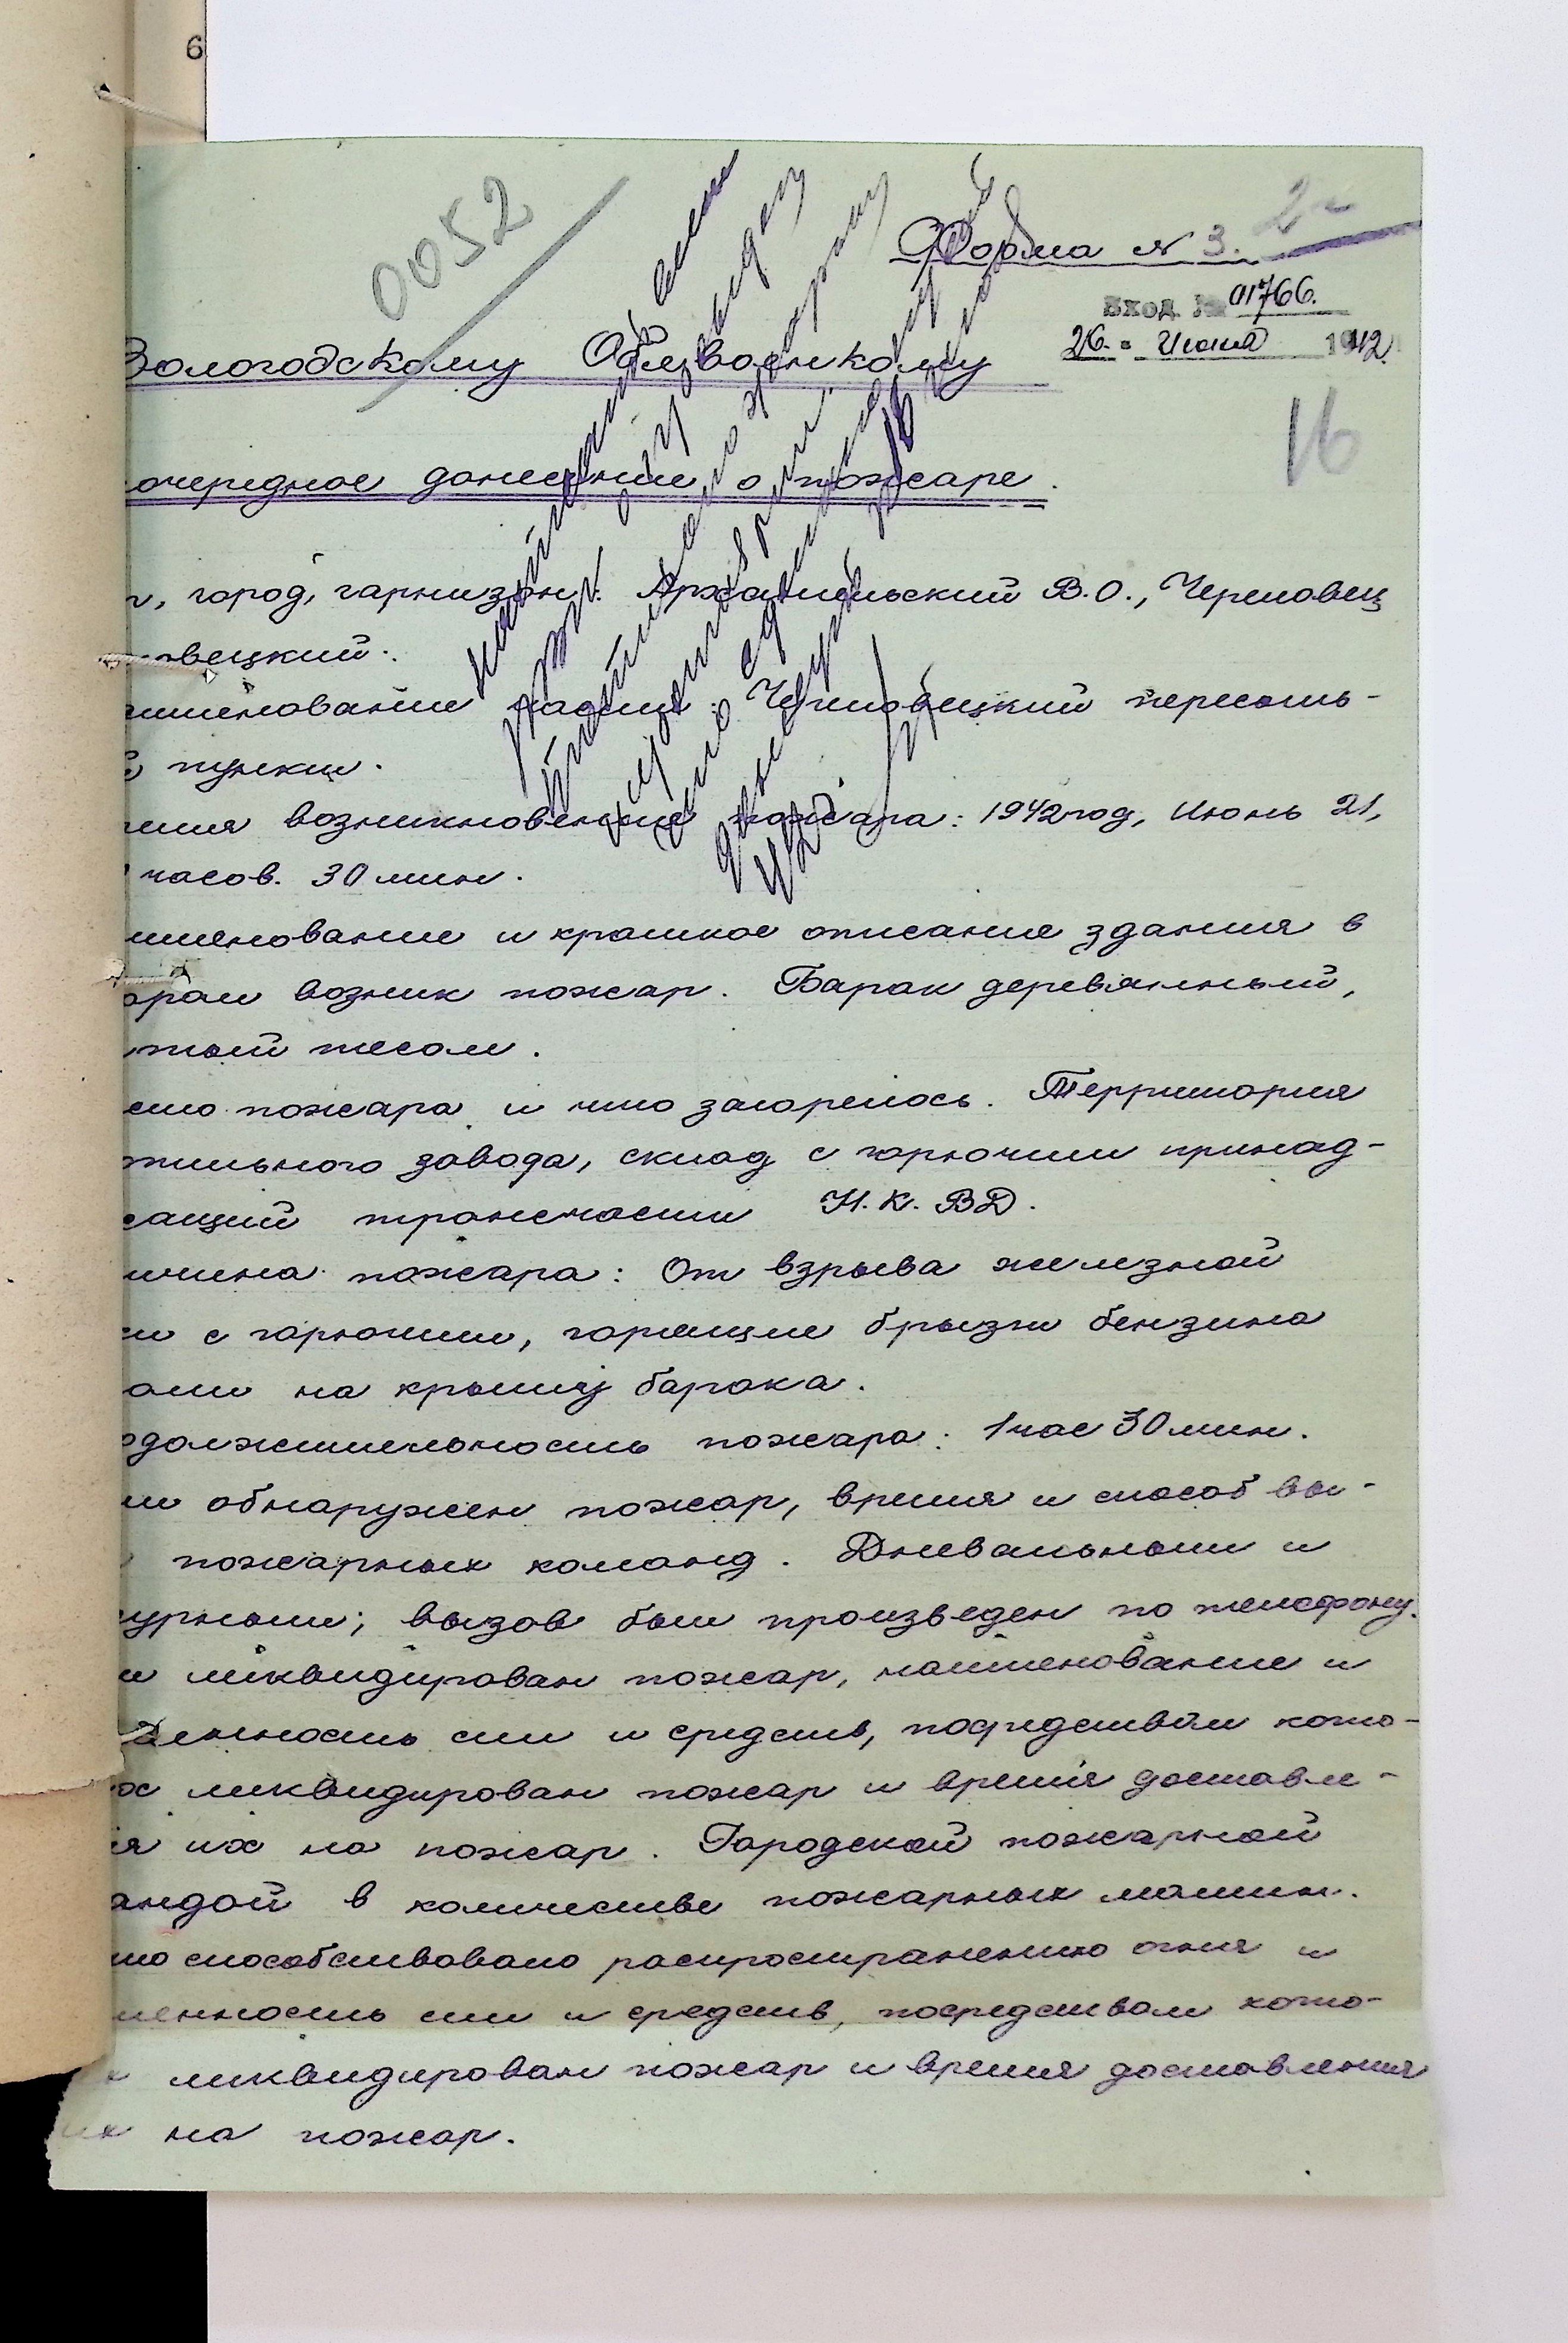 6
0052
2
Форма № 3.
Вход. № 01766.
26. Июня 1942
Вологодскому Облвоенкому
16
очередное донесение о пожаре.
г, город, гарнизон: Архангельский В.О., Череповец
овецкий.
именование части: Череповецкий пересыль-
й пункт.
ремя возникновения пожара: 1942 год, Июнь 21,
часов. 30 мин.
именование и краткое описание здания в
ором возник пожар. Барак деревянный,
тый тесом.
есто пожара и что загорелось. Территория
пильного завода, склад с горючим принад-
жащий трансчасти Н.К.ВД.
ичина пожара: От взрыва железной
и с горючим, горящие брызги бензина
али на крышу барака.
одолжительность пожара: 1 час 30 мин.
ем обнаружен пожар, время и способ вы-
пожарных команд. Дневальными и
журными; вызов был произведен по телефону.
м ликвидирован пожар, наименование и
ленность сил и средств, посредством кото-
ых ликвидирован пожар и время доставле-
ия их на пожар. Городской пожарной
андой в количестве пожарных машин.
то способствовало распространению огня и
ленность сил и средств, посредством кото-
х ликвидирован пожар и время доставления
их на пожар.